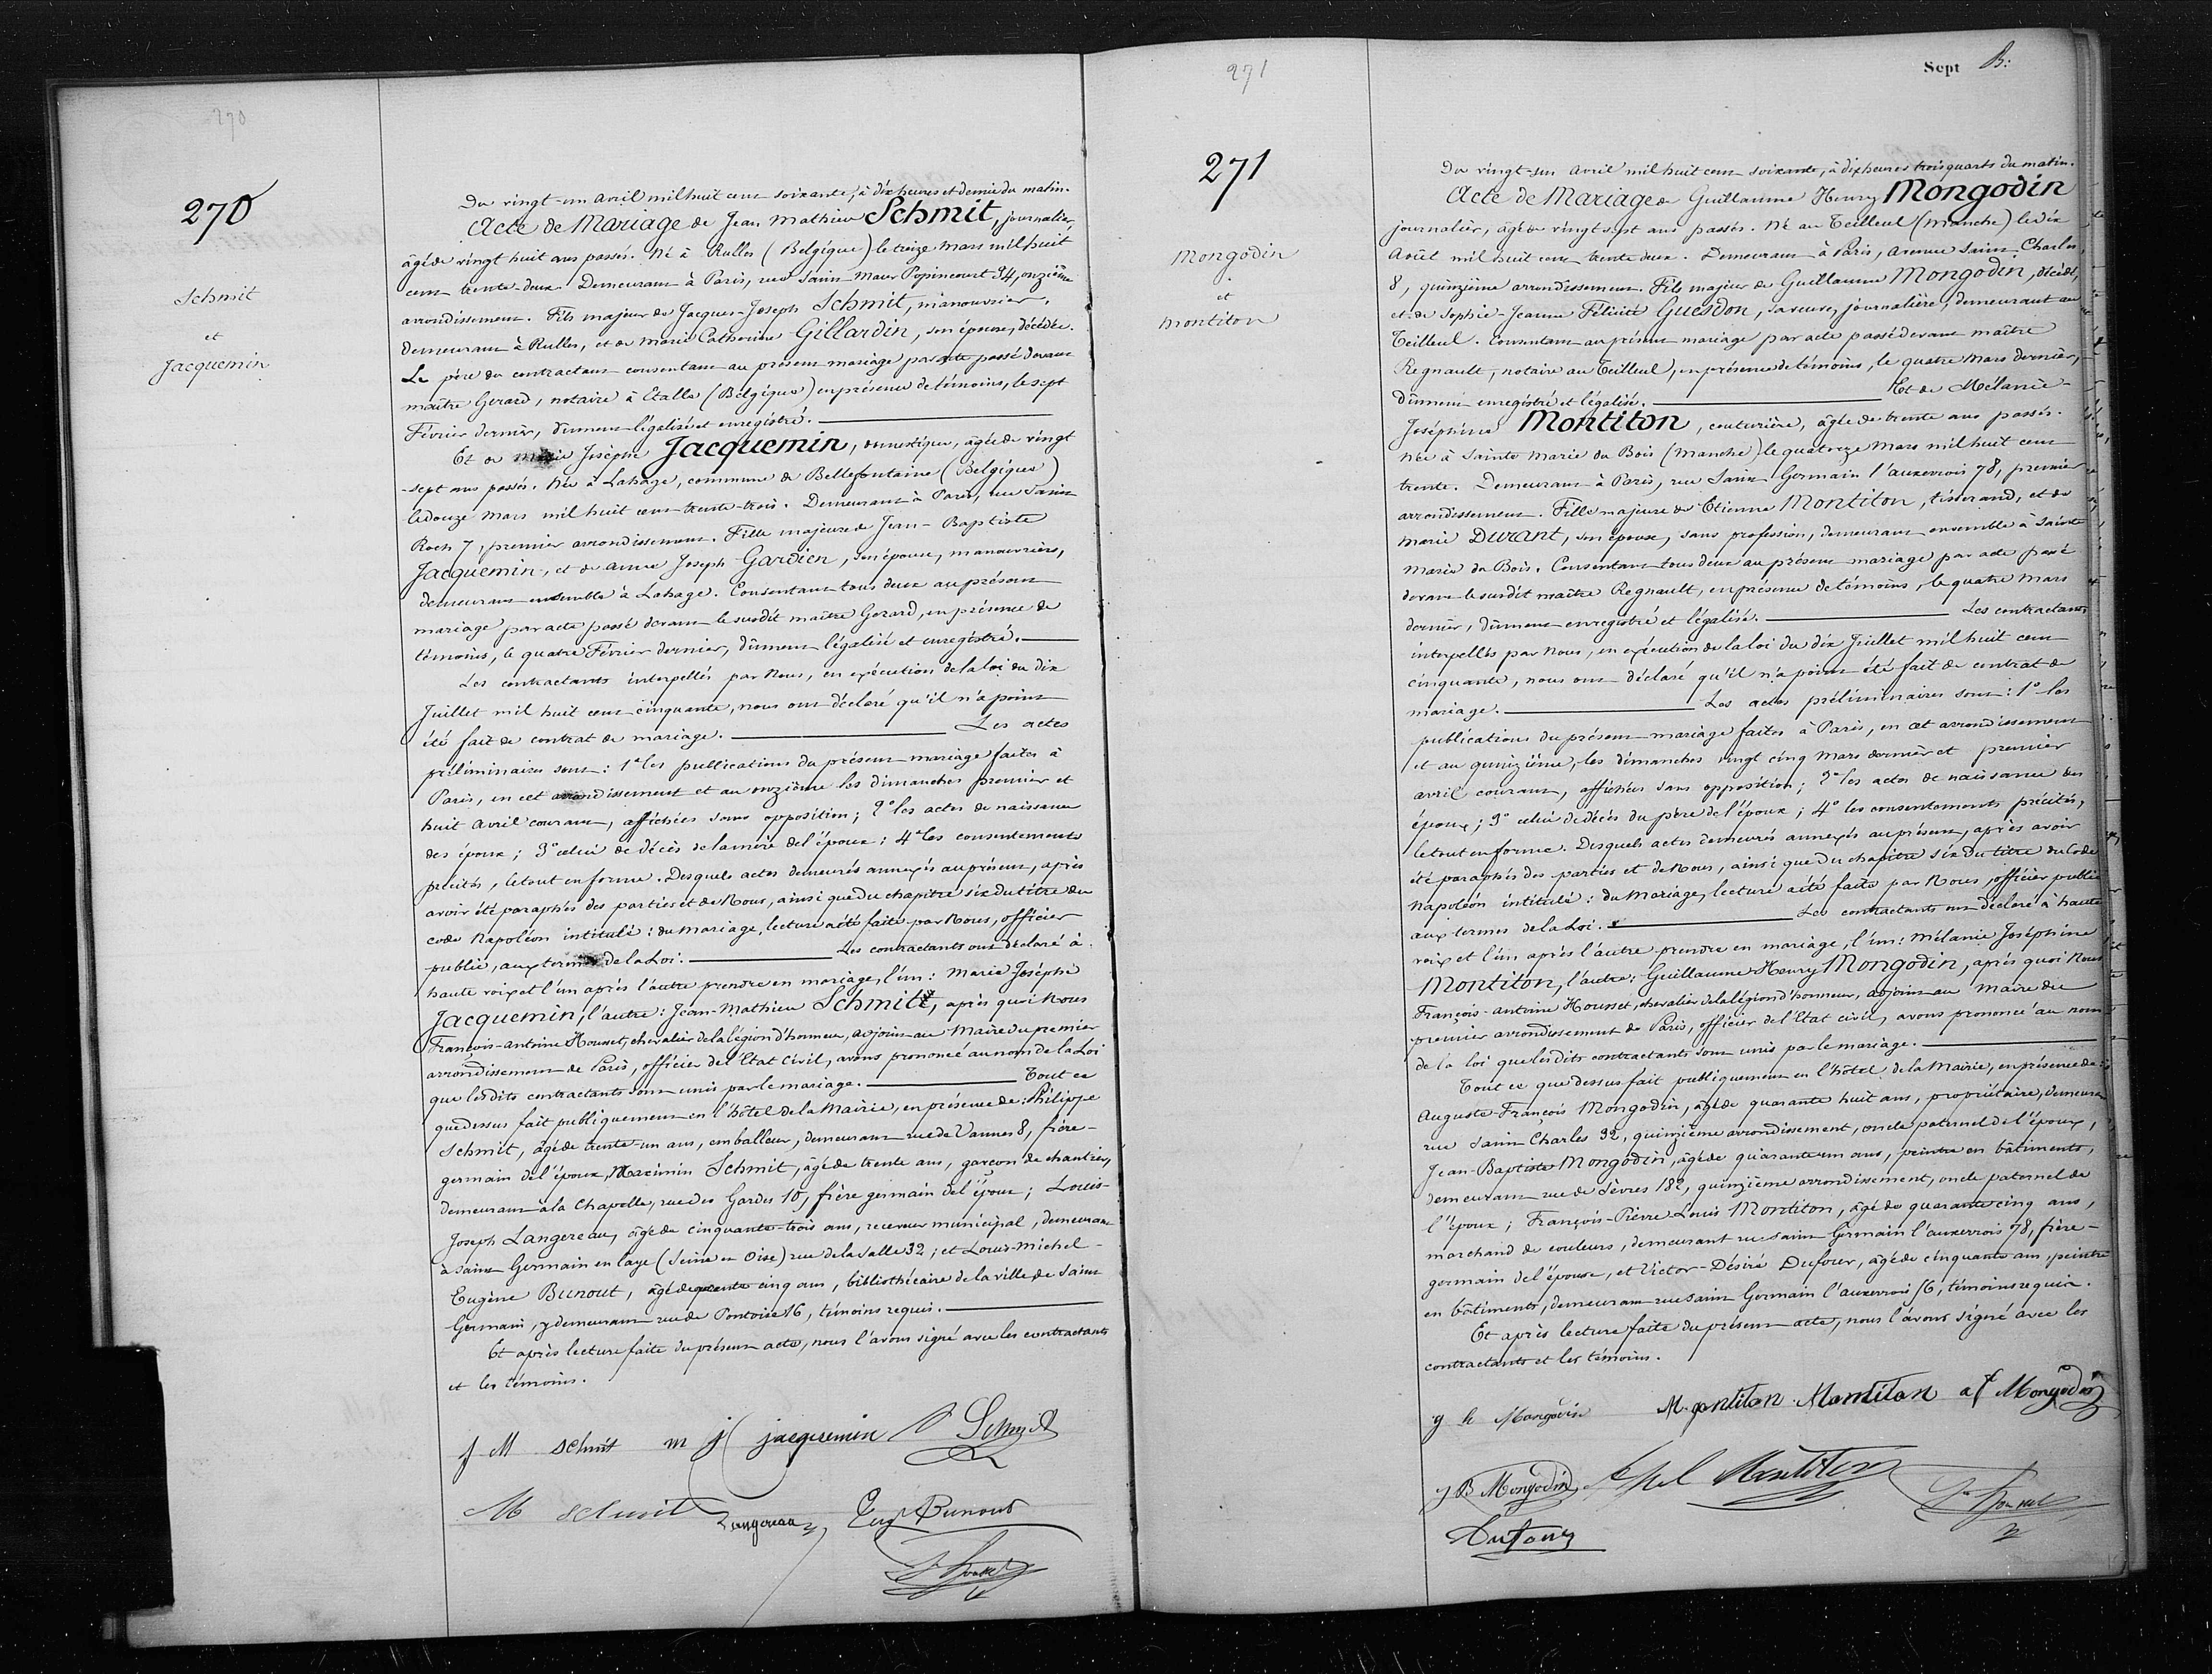 270
270
Schmit
et
Jacquemin
Du vingt-un avril mil huit cent soixante, à dix heures et demie du matin.
Acte de Mariage de Jean Mathieu Schmit, journalier,
âgé de vingt huit ans passés. Né à Rulles (Belgique) le treize mars mil huit
cent trente-deux. Demeurant à Paris, rue Saint Maur Popincourt 34, onzième
arrondissement. Fils majeur de Jacques-Joseph Schmit, manouvrier,
demeurant à Rulles, et de Marie Catherine Gillardin, son épouse, décédée.
Le père du contractant consentant au présent mariage par acte passé devant
maître Gerard, notaire à Etalle (Belgique) en présence de témoins, le sept
Février dernier, dûment légalisé et enregistré.
Et de Marie Josèphe Jacquemin, domestique, âgée de vingt
-sept ans passés. Née à Lahage, commune de Bellefontaine (Belgique)
le douze mars mil huit cent trente-trois. Demeurant à Paris, rue Saint
Roch 7, premier arrondissement. Fille majeure de Jean-Baptiste
Jacquemin, et de Anne Joseph Gardien, son épouse, manouvriers,
demeurant ensemble à Lahage. Consentant tous deux au présent
mariage par acte passé devant le susdit maître Gerard, en présence de
témoins, le quatre Février dernier, dûment légalisé et enregistré.
Les contractants interpellés par Nous, en exécution de la loi du dix
Juillet mil huit cent cinquante, nous ont déclaré qu'il n'a point
été fait de contrat de mariage. Les actes
préliminaires sont : 1° les publications du présent mariage faites à
Paris, en cet arrondissement et au onzième les dimanches premier et
huit avril courant, affichées sans opposition ; 2° les actes de naissance
des époux ; 3° celui de décès de la mère de l'époux ; 4° les consentements
précités, le tout en forme. Desquels actes demeurés annexés au présent, après
avoir été paraphés des parties et de Nous, ainsi que du chapitre six du titre du
code Napoléon intitulé : du Mariage, lecture a été faite par Nous, officier
public, aux termes de la Loi. Les contractants ont déclaré à
haute voix et l'un après l'autre prendre en mariage, l'un : Marie Josèphe
Jacquemin, l'autre : Jean-Mathieu Schmit, après quoi Nous
François-Antoine Housset, chevalier de la légion d'honneur, adjoint au Maire du premier
arrondissement de Paris, officier de l'Etat civil, avons prononcé au nom de la Loi
que lesdits contractants sont unis par le mariage. Tout ce
que dessus fait publiquement en l'hôtel de la Mairie, en présence de : Philippe
Schmit, âgé de trente un ans, emballeur, demeurant rue de Vannes 8, frère-
germain de l'époux, Maximin Schmit, âgé de trente ans, garçon de chantier,
demeurant à la Chapelle, rue des Gardes 10, frère germain de l'époux ; Louis-
Joseph Langereau, âgé de cinquante-trois ans, receveur municipal, demeurant
à Saint Germain en laye (Seine et Oise) rue de la Salle 32 ; et Louis-Michel-
Eugène Bunout, âgé de cinq ans, bibliothécaire de la ville de Saint
Germain, y demeurant rue de Pontoise 16, témoins requis.
Et après lecture faite du présent acte, nous l'avons signé avec les contractants
et les témoins.
J M schmit m j jacquemin P Schmit
M schmit Langereau Eug Bunout
271
Sept B:
271
Mongodin
et
Montiton
Du vingt-un avril mil huit cent soixante, à dix heures trois quarts du matin.
Acte de Mariage de Guillaume Henry Mongodin
journalier, âgé de vingt sept ans passés. Né au Teilleul (Manche) le dix
Août mil huit cent trente deux. Demeurant à Paris, Avenue Saint Charles,
8, quinzième arrondissement. Fils majeur de Guillaume Mongodin, décédé,
et de Sophie-Jeanne Félicité Guesdon, sa veuve, journalière, demeurant au
Teilleul. Consentant au présent mariage par acte passé devant maître
Regnault, notaire au Teilleul, en présence de témoins, le quatre Mars dernier,
dûment enregistré et légalisé. Et de Mélanie-
Joséphine Montiton, couturière, âgée de trente ans passés.
Née à Sainte Marie du Bois (Manche) le quatorze Mars mil huit cent
trente. Demeurant à Paris, rue Saint Germain l'auxerrois 78, premier
arrondissement. Fille majeure de Etienne Montiton, tisserand, et de
Marie Durant, son épouse, sans profession, demeurant ensemble à Sainte
Marie du Bois. Consentant tous deux au présent mariage par acte passé
devant le susdit maître Regnault, en présence de témoins, le quatre Mars
dernier, dûment enregistré et légalisé. Les contractants
interpellés par Nous, en exécution de la loi du dix Juillet mil huit cent
cinquante, nous ont déclaré qu'il n'a point été fait de contrat de
mariage. Les actes préliminaires sont : 1° les
publications du présent mariage faites à Paris, en cet arrondissement
et au quinzième, les dimanches vingt cinq Mars dernier et premier
avril courant, affichées sans opposition ; 2° les actes de naissance des
époux ; 3° celui de décès du père de l'époux ; 4° les consentements précités,
le tout en forme. Desquels actes demeurés annexés au présent, après avoir
été paraphés des parties et de Nous, ainsi que du chapitre six du titre du Code
Napoléon intitulé : du Mariage, lecture a été faite par Nous, officier public
aux termes de la Loi. Les contractants ont déclaré à haute
voix et l'un après l'autre prendre en mariage, l'un : Mélanie Joséphine
Montiton, l'autre : Guillaume Henry Mongodin, après quoi Nous
François-Antoine Housset, chevalier de la légion d'honneur, adjoint au Maire du
premier arrondissement de Paris, officier de l'Etat civil, avons prononcé au nom
de la loi que lesdits contractants sont unis par le mariage.
Tout ce que dessus fait publiquement en l'hôtel de la Mairie, en présence de :
Auguste-François Mongodin, âgé de quarante huit ans, propriétaire, demeurant
rue Saint Charles 32, quinzième arrondissement, oncle paternel de l'époux,
Jean-Baptiste Mongodin, âgé de quarante un ans, peintre en bâtiments,
demeurant rue de Sèvres 182, quinzième arrondissement, oncle paternel de
l'époux ; François-Pierre Louis Montiton, âgé de quarante cinq ans,
marchand de couleurs, demeurant rue Saint Germain l'auxerrois 78, frère-
germain de l'épouse, et Victor-Désiré Dufour, âgé de cinquante ans, peintre
en bâtiments, demeurant rue Saint Germain l'auxerrois 16, témoins requis.
Et après lecture faite du présent acte, nous l'avons signé avec les
contractants et les témoins.
g h Mongodin Montiton af Mongodin
J B Mongodin Montiton
Dufour